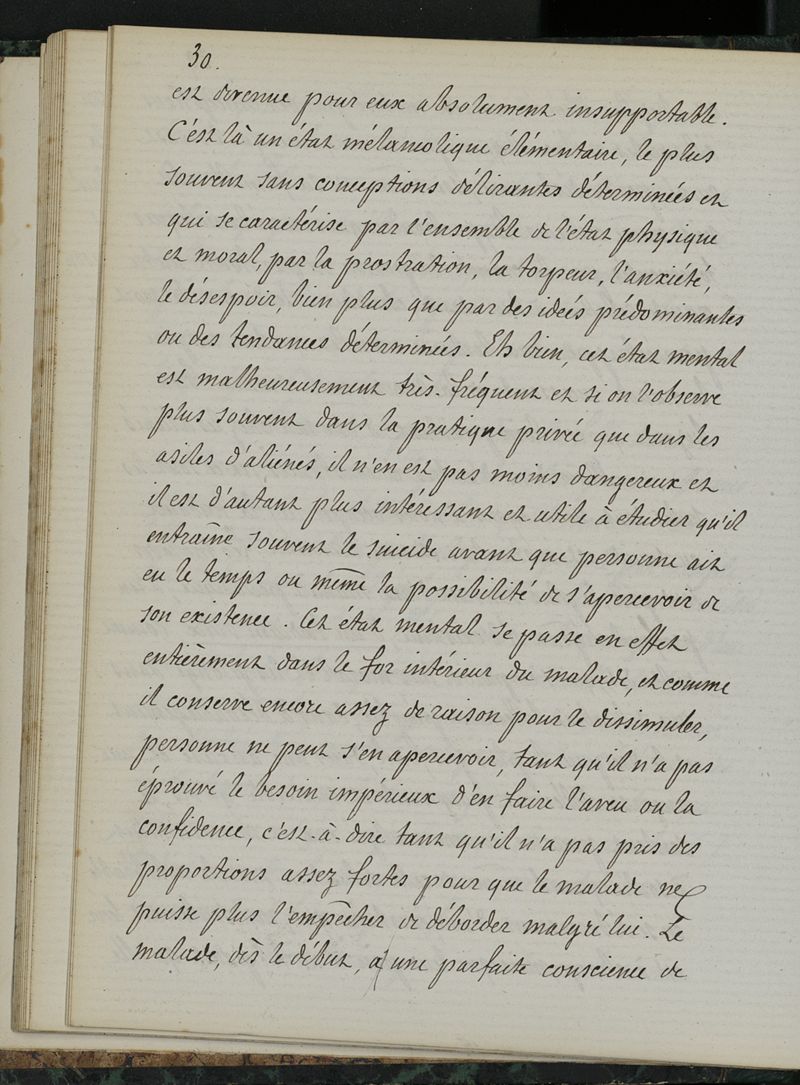 30.
est devenue pour eux absolument insupportable.
C'est là un état mélancolique élémentaire, le plus
souvent sans conceptions délirantes déterminées et
qui se caractérise par l'ensemble de l'état physique
et moral, par la prostration, la torpeur, l'anxiété,
le désespoir, bien plus que par des idées prédominantes
ou des tendances déterminées. Eh bien, cet état mental
est malheureusement très-fréquent et si on l'observe
plus souvent dans la pratique privée que dans les
asiles d'aliénés, il n'en est pas moins dangereux et
il est d'autant plus intéressant et utile à étudier qu'il
entraîne souvent le suicide avant que personne ait
eu le temps ou même la possibilité de s'apercevoir de
son existence. Cet état mental se passe en effet
entièrement dans le for intérieur du malade, et comme
il conserve encore assez de raison pour le dissimuler,
personne ne peut s'en apercevoir, tant qu'il n'a pas
éprouvé le besoin impérieux d'en faire l'aveu ou la
confidence, c'est-à-dire tant qu'il n'a pas pris des
proportions assez fortes pour que le malade ne
puisse plus l'empêcher de déborder malgré lui. Le
malade, dès le début, a une parfaite conscience de